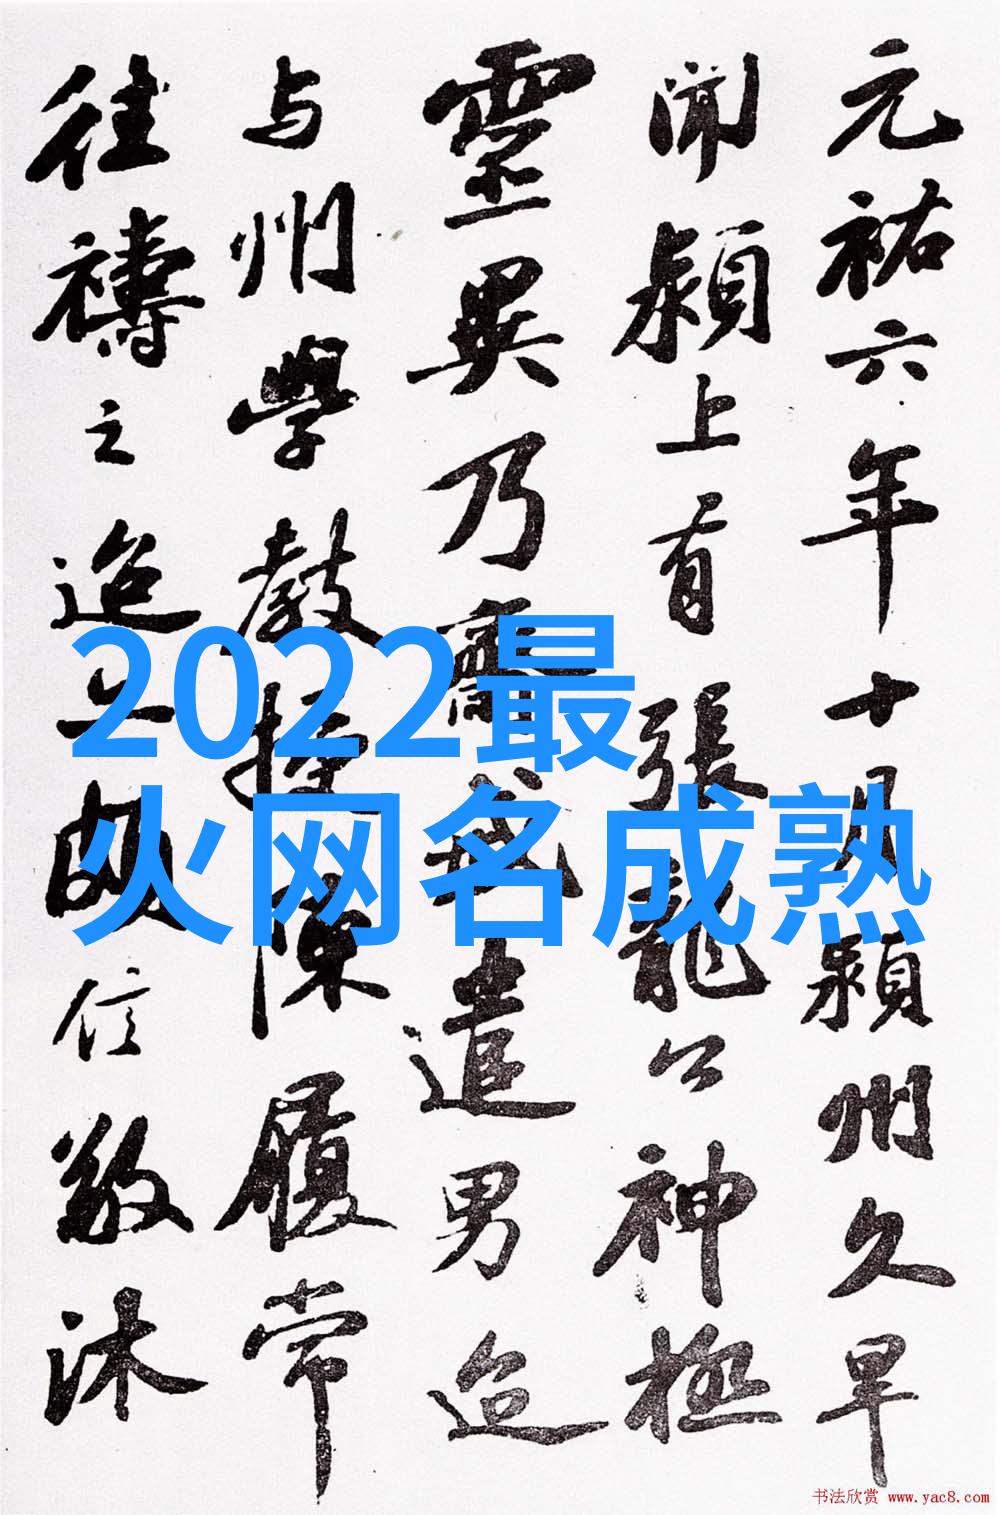 元祐六年十月颍州久旱
闻颍上有張龍公神極
靈異乃齋戒遣男迨
与州學教授陳履常
往禱之迨亦頗信敬沐
2022最
火网名成熟
书法欣赏 www.yac8.com